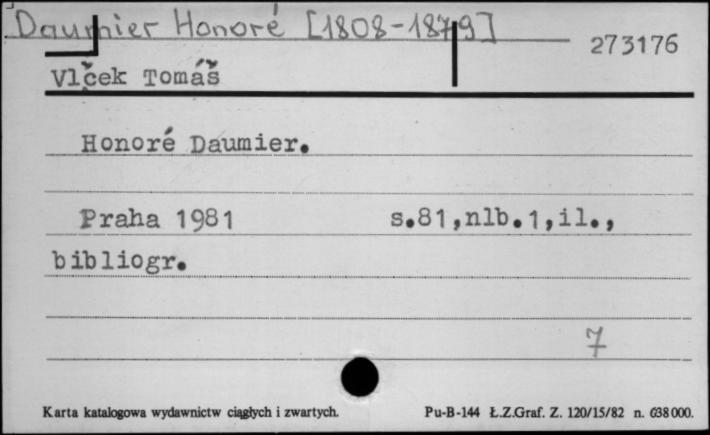 Daumier Honoré [1808-1879]
273176
Vlček Tomáš
Honoré Daumier.
Praha 1981 s.81,nlb.1,il.,
bibliogr.
7
Karta katalogowa wydawnictw ciągłych i zwartych. Pu-B-144 Ł.Z.Graf. Z. 120/15/82 n. 638000.